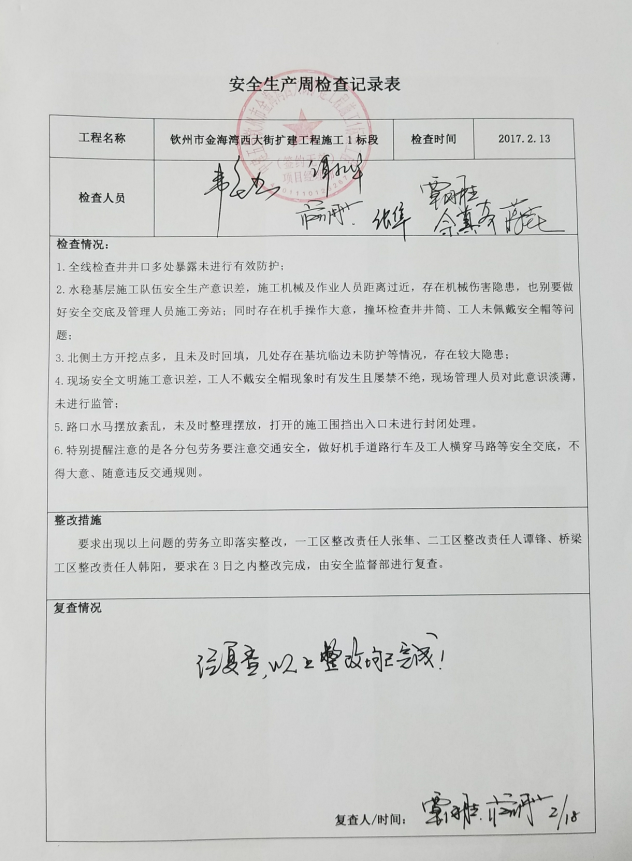 安全生产周检查记录表
工程名称 钦州市金海湾西大街扩建工程施工1标段 检查时间 2017.2.13
检查人员
张隼
检查情况：
1.全线检查井井口多处暴露未进行有效防护；
2.水稳基层施工队伍安全生产意识差，施工机械及作业人员距离过近，存在机械伤害隐患，也别要做
好安全交底及管理人员施工旁站；同时存在机手操作大意，撞坏检查井井筒、工人未佩戴安全帽等问
题；
3.北侧土方开挖点多，且未及时回填，几处存在基坑临边未防护等情况，存在较大隐患；
4.现场安全文明施工意识差，工人不戴安全帽现象时有发生且屡禁不绝，现场管理人员对此意识淡薄，
未进行监管；
5.路口水马摆放紊乱，未及时整理摆放，打开的施工围挡出入口未进行封闭处理。
6.特别提醒注意的是各分包劳务要注意交通安全，做好机手道路行车及工人横穿马路等安全交底，不
得大意、随意违反交通规则。
整改措施
要求出现以上问题的劳务立即落实整改，一工区整改责任人张隼、二工区整改责任人谭锋、桥梁
工区整改责任人韩阳，要求在3日之内整改完成，由安全监督部进行复查。
复查情况
经复查，以上整改均已完成！
复查人/时间： 2/18